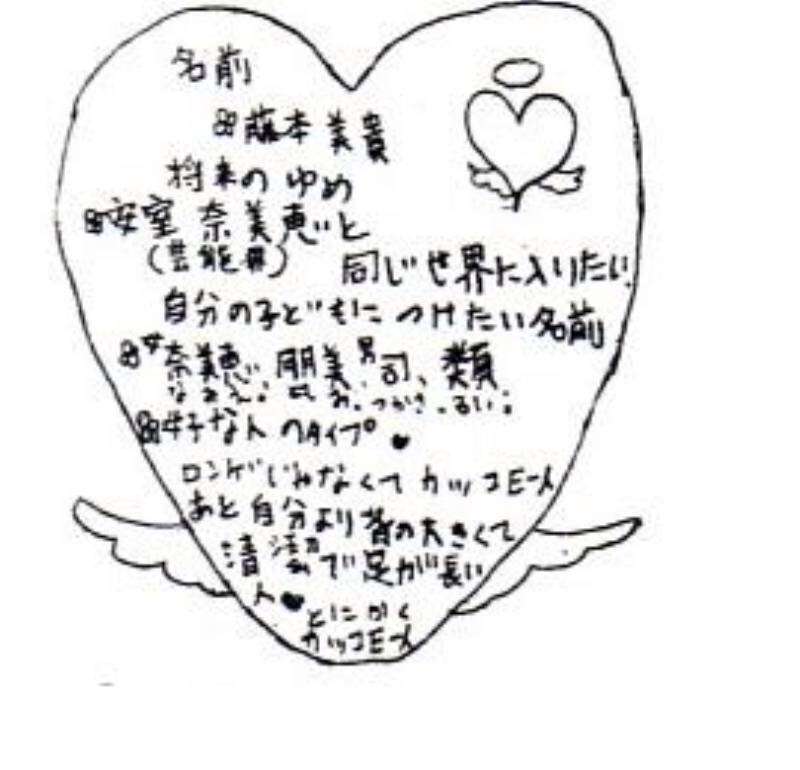 名前
藤本美貴
将来のゆめ
安室奈美恵と
(芸能界) 同じ世界に入りたい
自分の子どもにつけたい名前
女 奈美恵 朋美 男 司、類
なみえ。ともみ。つかさ。るい。
好きな人のタイプ
ロンゲじゃなくてカッコE人
あと自分より背の大きくて
清潔で足が長い
人♥
とにかく
カッコE人